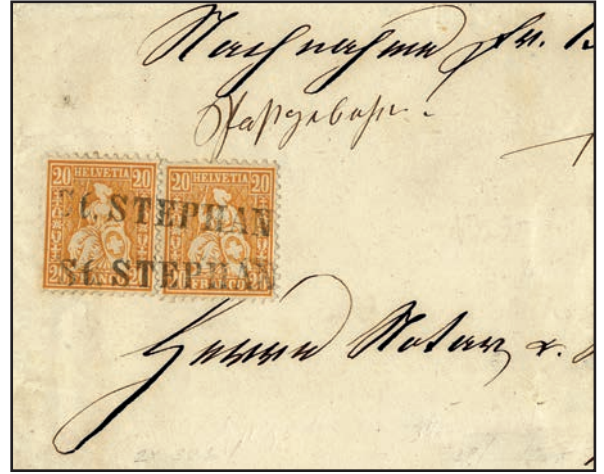 Nachnahme fr.
20 HELVETIA 20 20 HELVETIA 20
St. STEPHAN
St. STEPHAN
20 FRANCO 20 20 FRANCO 20
Herrn Notar